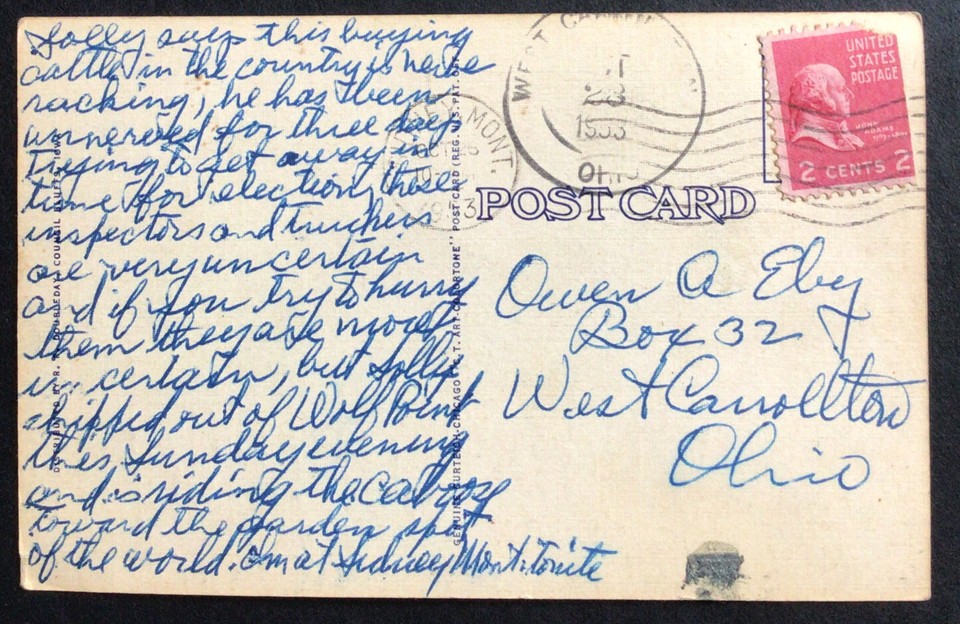 Jolly says this buying
cattle in the country is nerve
racking, he has been
unnerved for three days
trying to get away in
time for election, those
inspectors and truckers
are very uncertain
and if you try to hurry
them they are more
uncertain, but Jolly
shipped out of Wolf Point
this Sunday evening
and is riding the caboose
toward the garden spot
of the world. Im at Sidney Mont. tonite
POST CARD
WEST
OHIO
28
1953
MONT.
OCT 26
UNITED
STATES
POSTAGE
JOHN
ADAMS
2 CENTS 2
Owen A Eby
Box 32
West Carrollton
Ohio
COUNCIL BLUFFS, IOWA
GENUINE CURTEICH-CHICAGO "C. T. ART-COLORTONE" POST CARD (REG. U. S. PAT. OFF.)